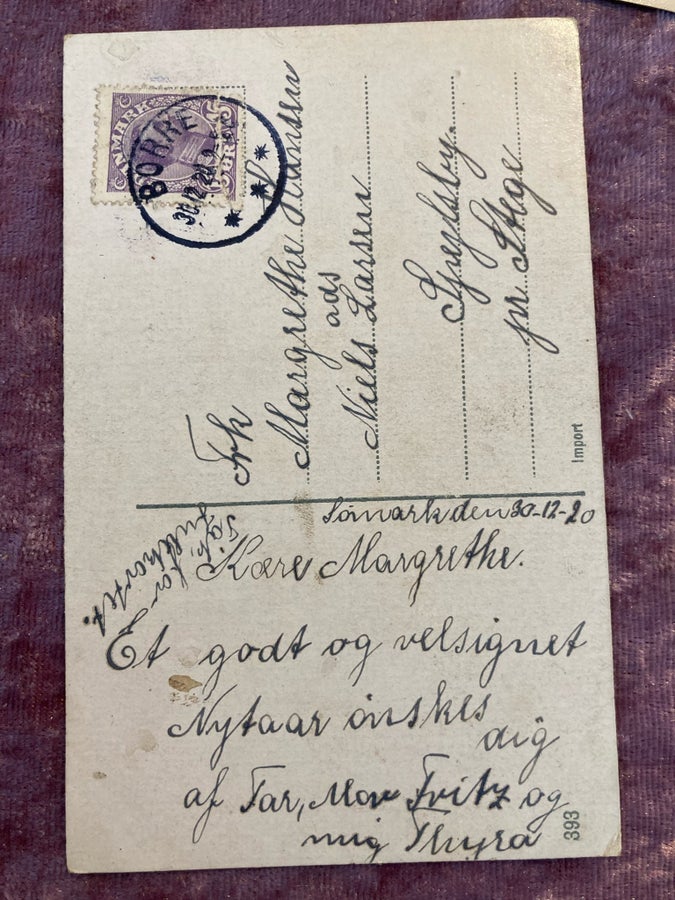 DANMARK
15 ØRE
BORRE
30.12.20
Frk
Margrethe Hansen
ads
Niels Larsen
Spejlsby.
pr. Stege
Import
Sømark den 30-12-20
Tak for
Julekortet.
Kære Margrethe.
Et godt og velsignet
Nytaar ønskes
dig
af Far, Mor Fritz og
mig Thyra
393